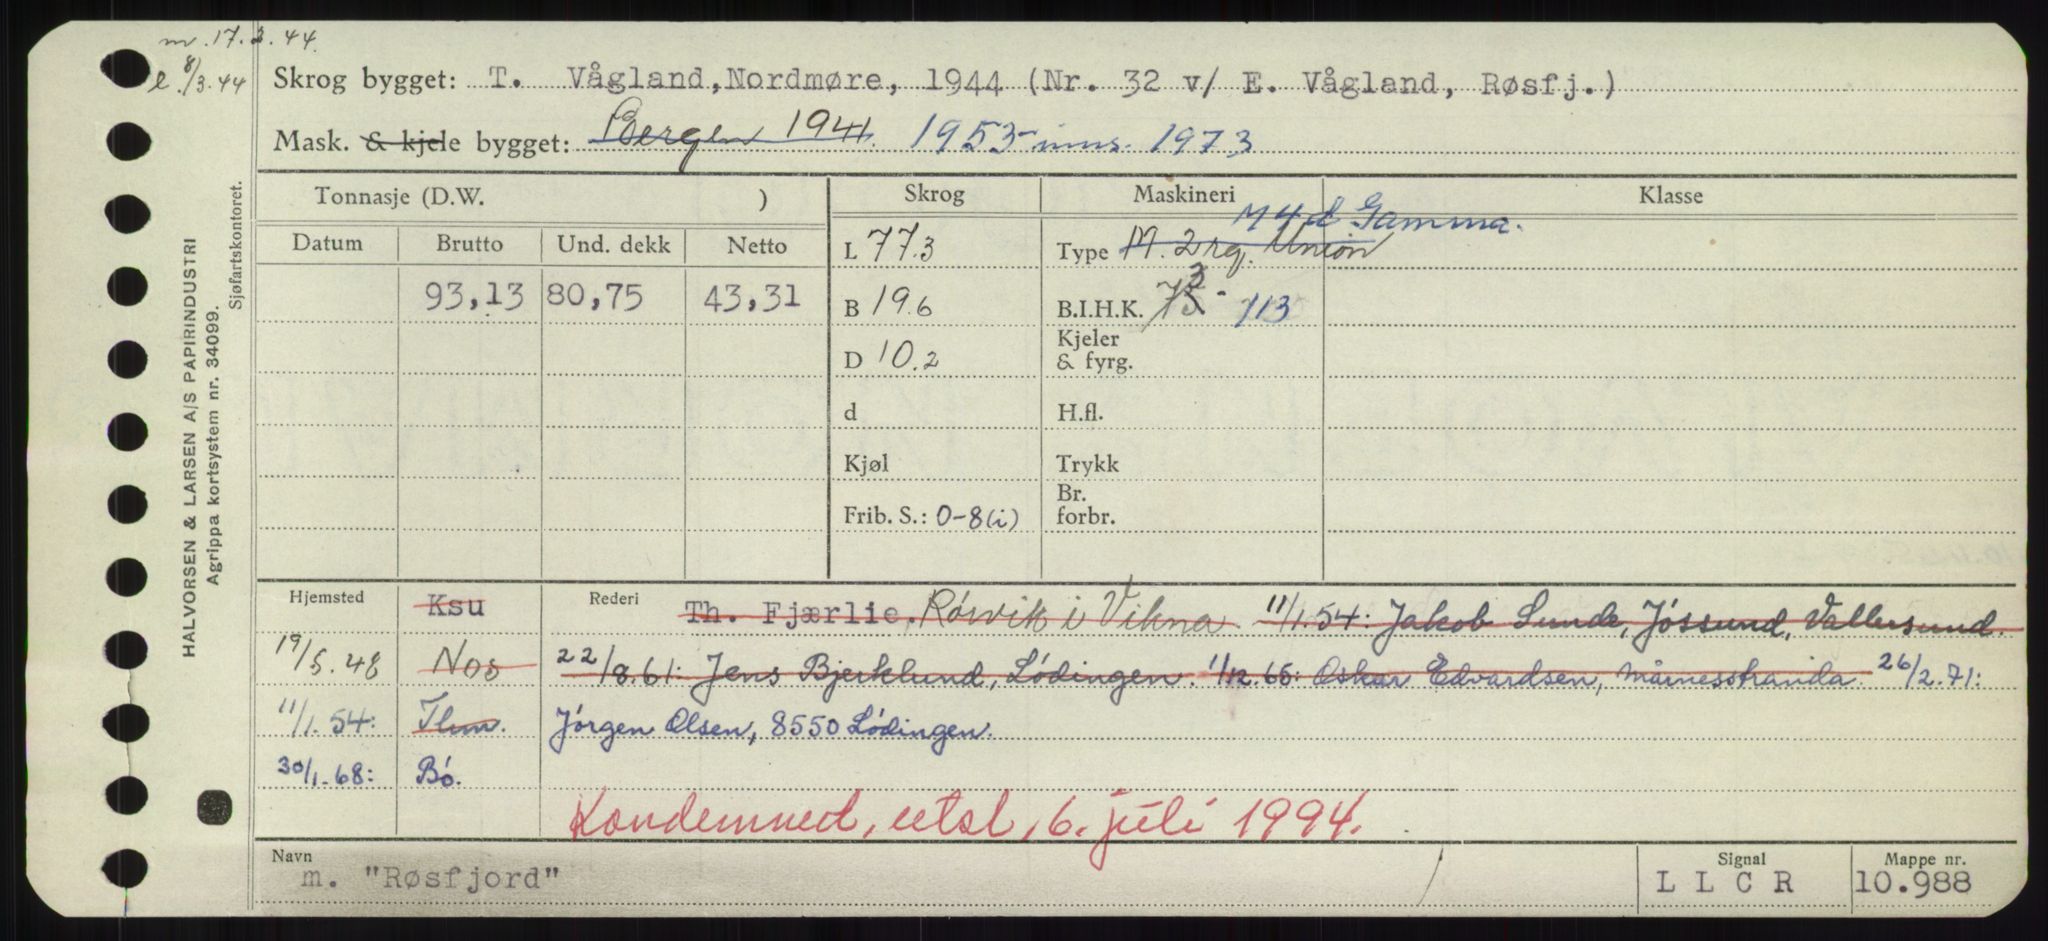 m. 17.3.44.
l. 8/3.44
Skrog bygget: T. Vågland, Nordmøre, 1944 (Nr. 32 v/ E. Vågland, Røsfj.)
Mask. & kjele bygget: Bergen 1941. 1953 - inns. 1973
Tonnasje (D.W. ) Skrog Maskineri Klasse
Datum Brutto Und. dekk Netto
L 77.3 Type M. 2 rg. Union M 4 d Gamma.
93,13 80,75 43,31 B 19.6 B.I.H.K. 113
D 10.2 Kjeler & fyrg.
d H.fl.
Kjøl Trykk
Frib. S.: 0-8(i) Br. forbr.
Hjemsted Ksu Rederi Th. Fjærlie, Rörvik i Vikna. 11/1.54: Jakob Sunde, Jössund, Vallersund.
19/5.48 Nos 22/8.61: Jens Bjerklund, Lödingen. 1/12.65: Oskar Edvardsen, Mårnesstranda. 26/2.71:
11/1.54: Thm. Jörgen Olsen, 8550 Lödingen.
30/1.68: Bö.
Kondemned, utsl, 6. juli 1994.
Navn m. "Røsfjord" Signal L L C R Mappe nr. 10.988
HALVORSEN & LARSEN A/S PAPIRINDUSTRI
Agrippa kortsystem nr. 34099.
Sjøfartskontoret.